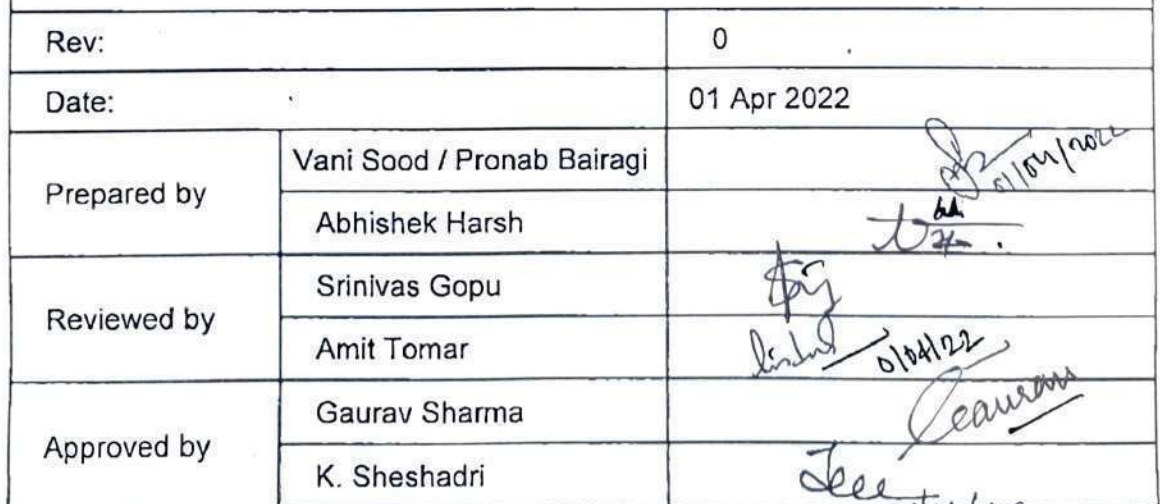 Rev: 0
Date: 01 Apr 2022
Prepared by
Vani Sood / Pronab Bairagi 01/04/2022
Abhishek Harsh
Reviewed by
Srinivas Gopu
Amit Tomar 01/04/22
Approved by
Gaurav Sharma Gaurav
K. Sheshadri